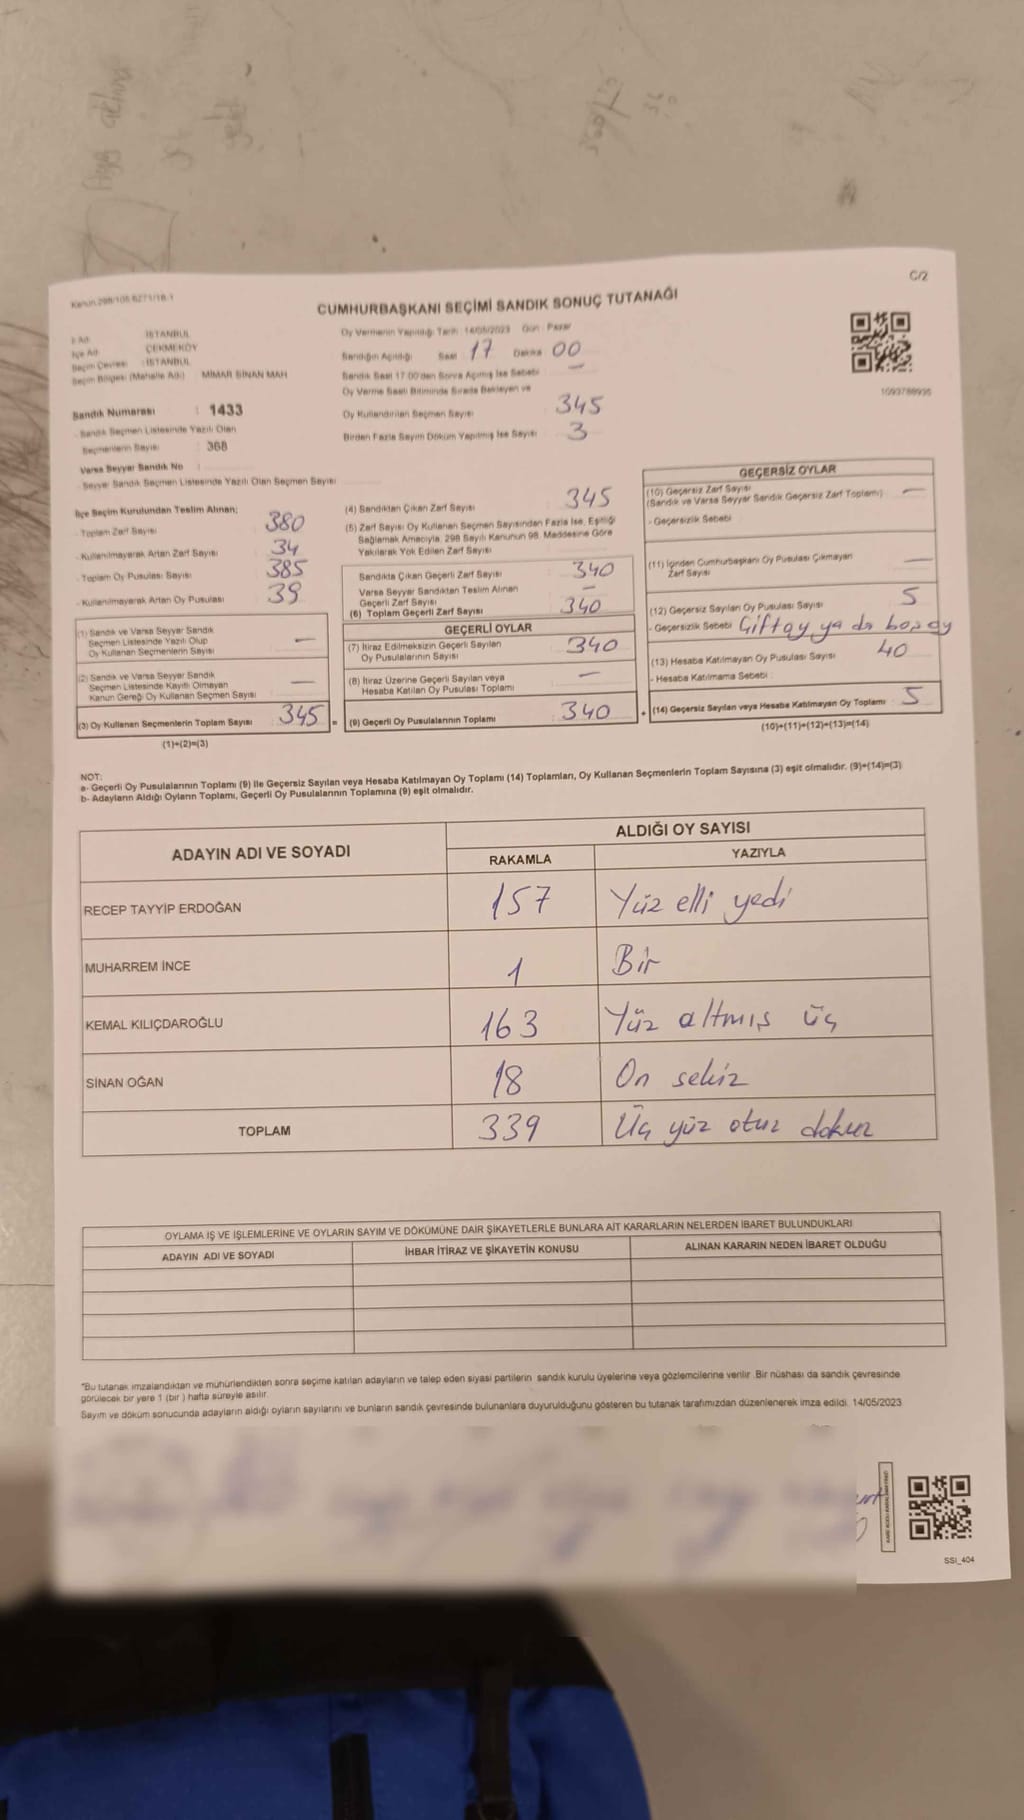 C/2
Kanun 298/105 6271/18-1
CUMHURBAŞKANI SEÇİMİ SANDIK SONUÇ TUTANAĞI
İl Adı : İSTANBUL
İlçe Adı : ÇEKMEKÖY
Seçim Çevresi : İSTANBUL
Seçim Bölgesi (Mahalle Adı) : MİMAR SİNAN MAH
Sandık Numarası : 1433
- Sandık Seçmen Listesinde Yazılı Olan
Seçmenlerin Sayısı : 368
Varsa Seyyar Sandık No :
- Seyyar Sandık Seçmen Listesinde Yazılı Olan Seçmen Sayısı
Oy Vermenin Yapıldığı Tarih : 14/05/2023 Gün : Pazar
Sandığın Açıldığı Saat 17 Dakika 00
Sandık Saat 17.00'den Sonra Açılmış İse Sebebi —
Oy Verme Saati Bitiminde Sırada Bekleyen ve
Oy Kullandırılan Seçmen Sayısı 345
Birden Fazla Sayım Döküm Yapılmış İse Sayısı 3
1093788935
İlçe Seçim Kurulundan Teslim Alınan;
- Toplam Zarf Sayısı 380
- Kullanılmayarak Artan Zarf Sayısı 34
- Toplam Oy Pusulası Sayısı 385
- Kullanılmayarak Artan Oy Pusulası 39
(1) Sandık ve Varsa Seyyar Sandık
Seçmen Listesinde Yazılı Olup
Oy Kullanan Seçmenlerin Sayısı —
(2) Sandık ve Varsa Seyyar Sandık
Seçmen Listesinde Kayıtlı Olmayan
Kanun Gereği Oy Kullanan Seçmen Sayısı —
(3) Oy Kullanan Seçmenlerin Toplam Sayısı : 345 =
(1)+(2)=(3)
(4) Sandıktan Çıkan Zarf Sayısı 345
(5) Zarf Sayısı Oy Kullanan Seçmen Sayısından Fazla İse, Eşitliği
Sağlamak Amacıyla, 298 Sayılı Kanunun 98. Maddesine Göre
Yakılarak Yok Edilen Zarf Sayısı
Sandıkta Çıkan Geçerli Zarf Sayısı 340
Varsa Seyyar Sandıktan Teslim Alınan
Geçerli Zarf Sayısı —
(6) Toplam Geçerli Zarf Sayısı 340
GEÇERLİ OYLAR
(7) İtiraz Edilmeksizin Geçerli Sayılan
Oy Pusulalarının Sayısı 340
(8) İtiraz Üzerine Geçerli Sayılan veya
Hesaba Katılan Oy Pusulası Toplamı —
(9) Geçerli Oy Pusulalarının Toplamı 340 +
GEÇERSİZ OYLAR
(10) Geçersiz Zarf Sayısı —
(Sandık ve Varsa Seyyar Sandık Geçersiz Zarf Toplamı)
- Geçersizlik Sebebi :
(11) İçinden Cumhurbaşkanı Oy Pusulası Çıkmayan
Zarf Sayısı —
(12) Geçersiz Sayılan Oy Pusulası Sayısı 5
- Geçersizlik Sebebi : Çiftoy ya da boş oy
(13) Hesaba Katılmayan Oy Pusulası Sayısı 40
- Hesaba Katılmama Sebebi :
(14) Geçersiz Sayılan veya Hesaba Katılmayan Oy Toplamı 5
(10)+(11)+(12)+(13)=(14)
NOT:
a- Geçerli Oy Pusulalarının Toplamı (9) ile Geçersiz Sayılan veya Hesaba Katılmayan Oy Toplamı (14) Toplamları, Oy Kullanan Seçmenlerin Toplam Sayısına (3) eşit olmalıdır. (9)+(14)=(3)
b- Adayların Aldığı Oyların Toplamı, Geçerli Oy Pusulalarının Toplamına (9) eşit olmalıdır.
ADAYIN ADI VE SOYADI ALDIĞI OY SAYISI
RAKAMLA YAZIYLA
RECEP TAYYİP ERDOĞAN 157 Yüz elli yedi
MUHARREM İNCE 1 Bir
KEMAL KILIÇDAROĞLU 163 Yüz altmış üç
SİNAN OĞAN 18 On sekiz
TOPLAM 339 Üç yüz otuz dokuz
OYLAMA İŞ VE İŞLEMLERİNE VE OYLARIN SAYIM VE DÖKÜMÜNE DAİR ŞİKAYETLERLE BUNLARA AİT KARARLARIN NELERDEN İBARET BULUNDUKLARI
ADAYIN ADI VE SOYADI İHBAR İTİRAZ VE ŞİKAYETİN KONUSU ALINAN KARARIN NEDEN İBARET OLDUĞU
*Bu tutanak imzalandıktan ve mühürlendikten sonra seçime katılan adayların ve talep eden siyasi partilerin sandık kurulu üyelerine veya gözlemcilerine verilir. Bir nüshası da sandık çevresinde
görülecek bir yere 1 (bir) hafta süreyle asılır.
Sayım ve döküm sonucunda adayların aldığı oyların sayılarını ve bunların sandık çevresinde bulunanlara duyurulduğunu gösteren bu tutanak tarafımızdan düzenlenerek imza edildi. 14/05/2023
SSI_404